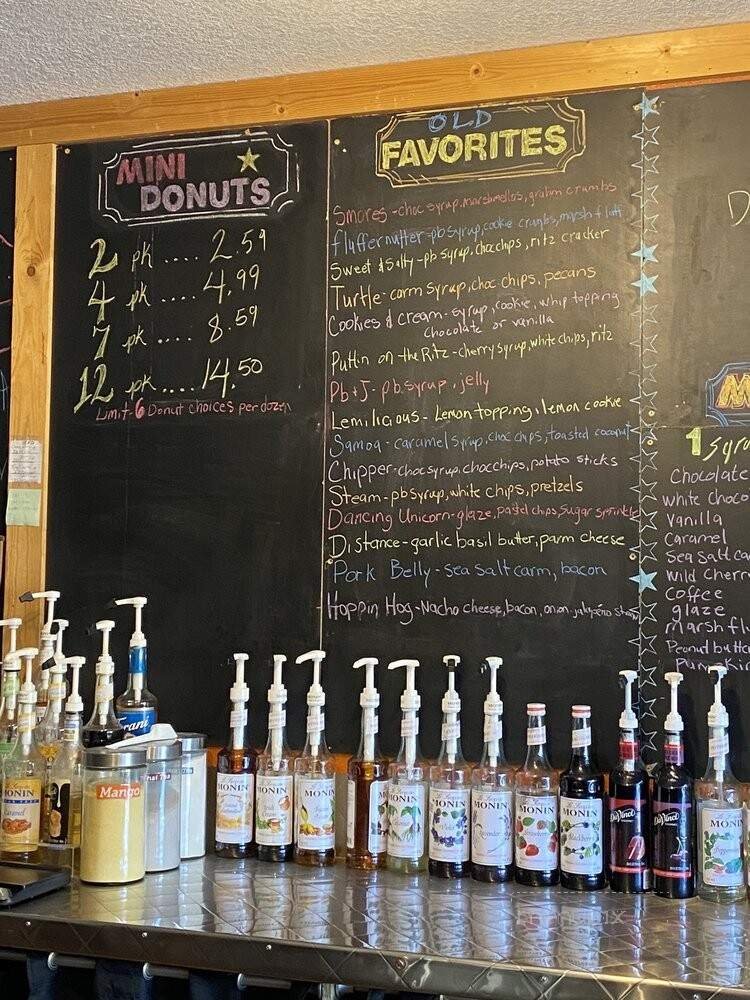 MINI
DONUTS
2 pk .... 2.59
4 pk .... 4.99
7 pk .... 8.59
12 pk .... 14.50
Limit-6 Donut choices per dozen
OLD
FAVORITES
Smores-choc syrup, marshmellos, grahm crumbs
fluffernutter-pb syrup, cookie crumbs, marsh fluff
Sweet & Salty-pb syrup, choc chips, ritz cracker
Turtle-carm syrup, choc chips, pecans
Cookies & cream-syrup, cookie, whip topping
chocolate or vanilla
Puttin on the Ritz-cherry syrup, white chips, ritz
Pb+J-pb syrup, jelly
Lemilicious-Lemon topping, lemon cookie
Samoa-caramel syrup, choc chips, toasted coconut
Chipper-choc syrup, choc chips, potato sticks
Steam-pb syrup, white chips, pretzels
Dancing Unicorn-glaze, pastel chips, sugar sprinkle
Distance-garlic basil butter, parm cheese
Pork Belly-sea salt carm, bacon
Hoppin Hog-Nacho cheese, bacon, onion, jalapeno
D
M
1 Syru
Chocolate
white choco
vanilla
Caramel
Sea Salt ca
wild cherr
Coffee
glaze
marsh flu
Peanut butte
Pumpkin
Torani
Mango
Thai Tea
MONIN
caramel
MONIN
MONIN
MONIN
MONIN
MONIN
MONIN
MONIN
MONIN
blackberry
DaVinci
DaVinci
MONIN